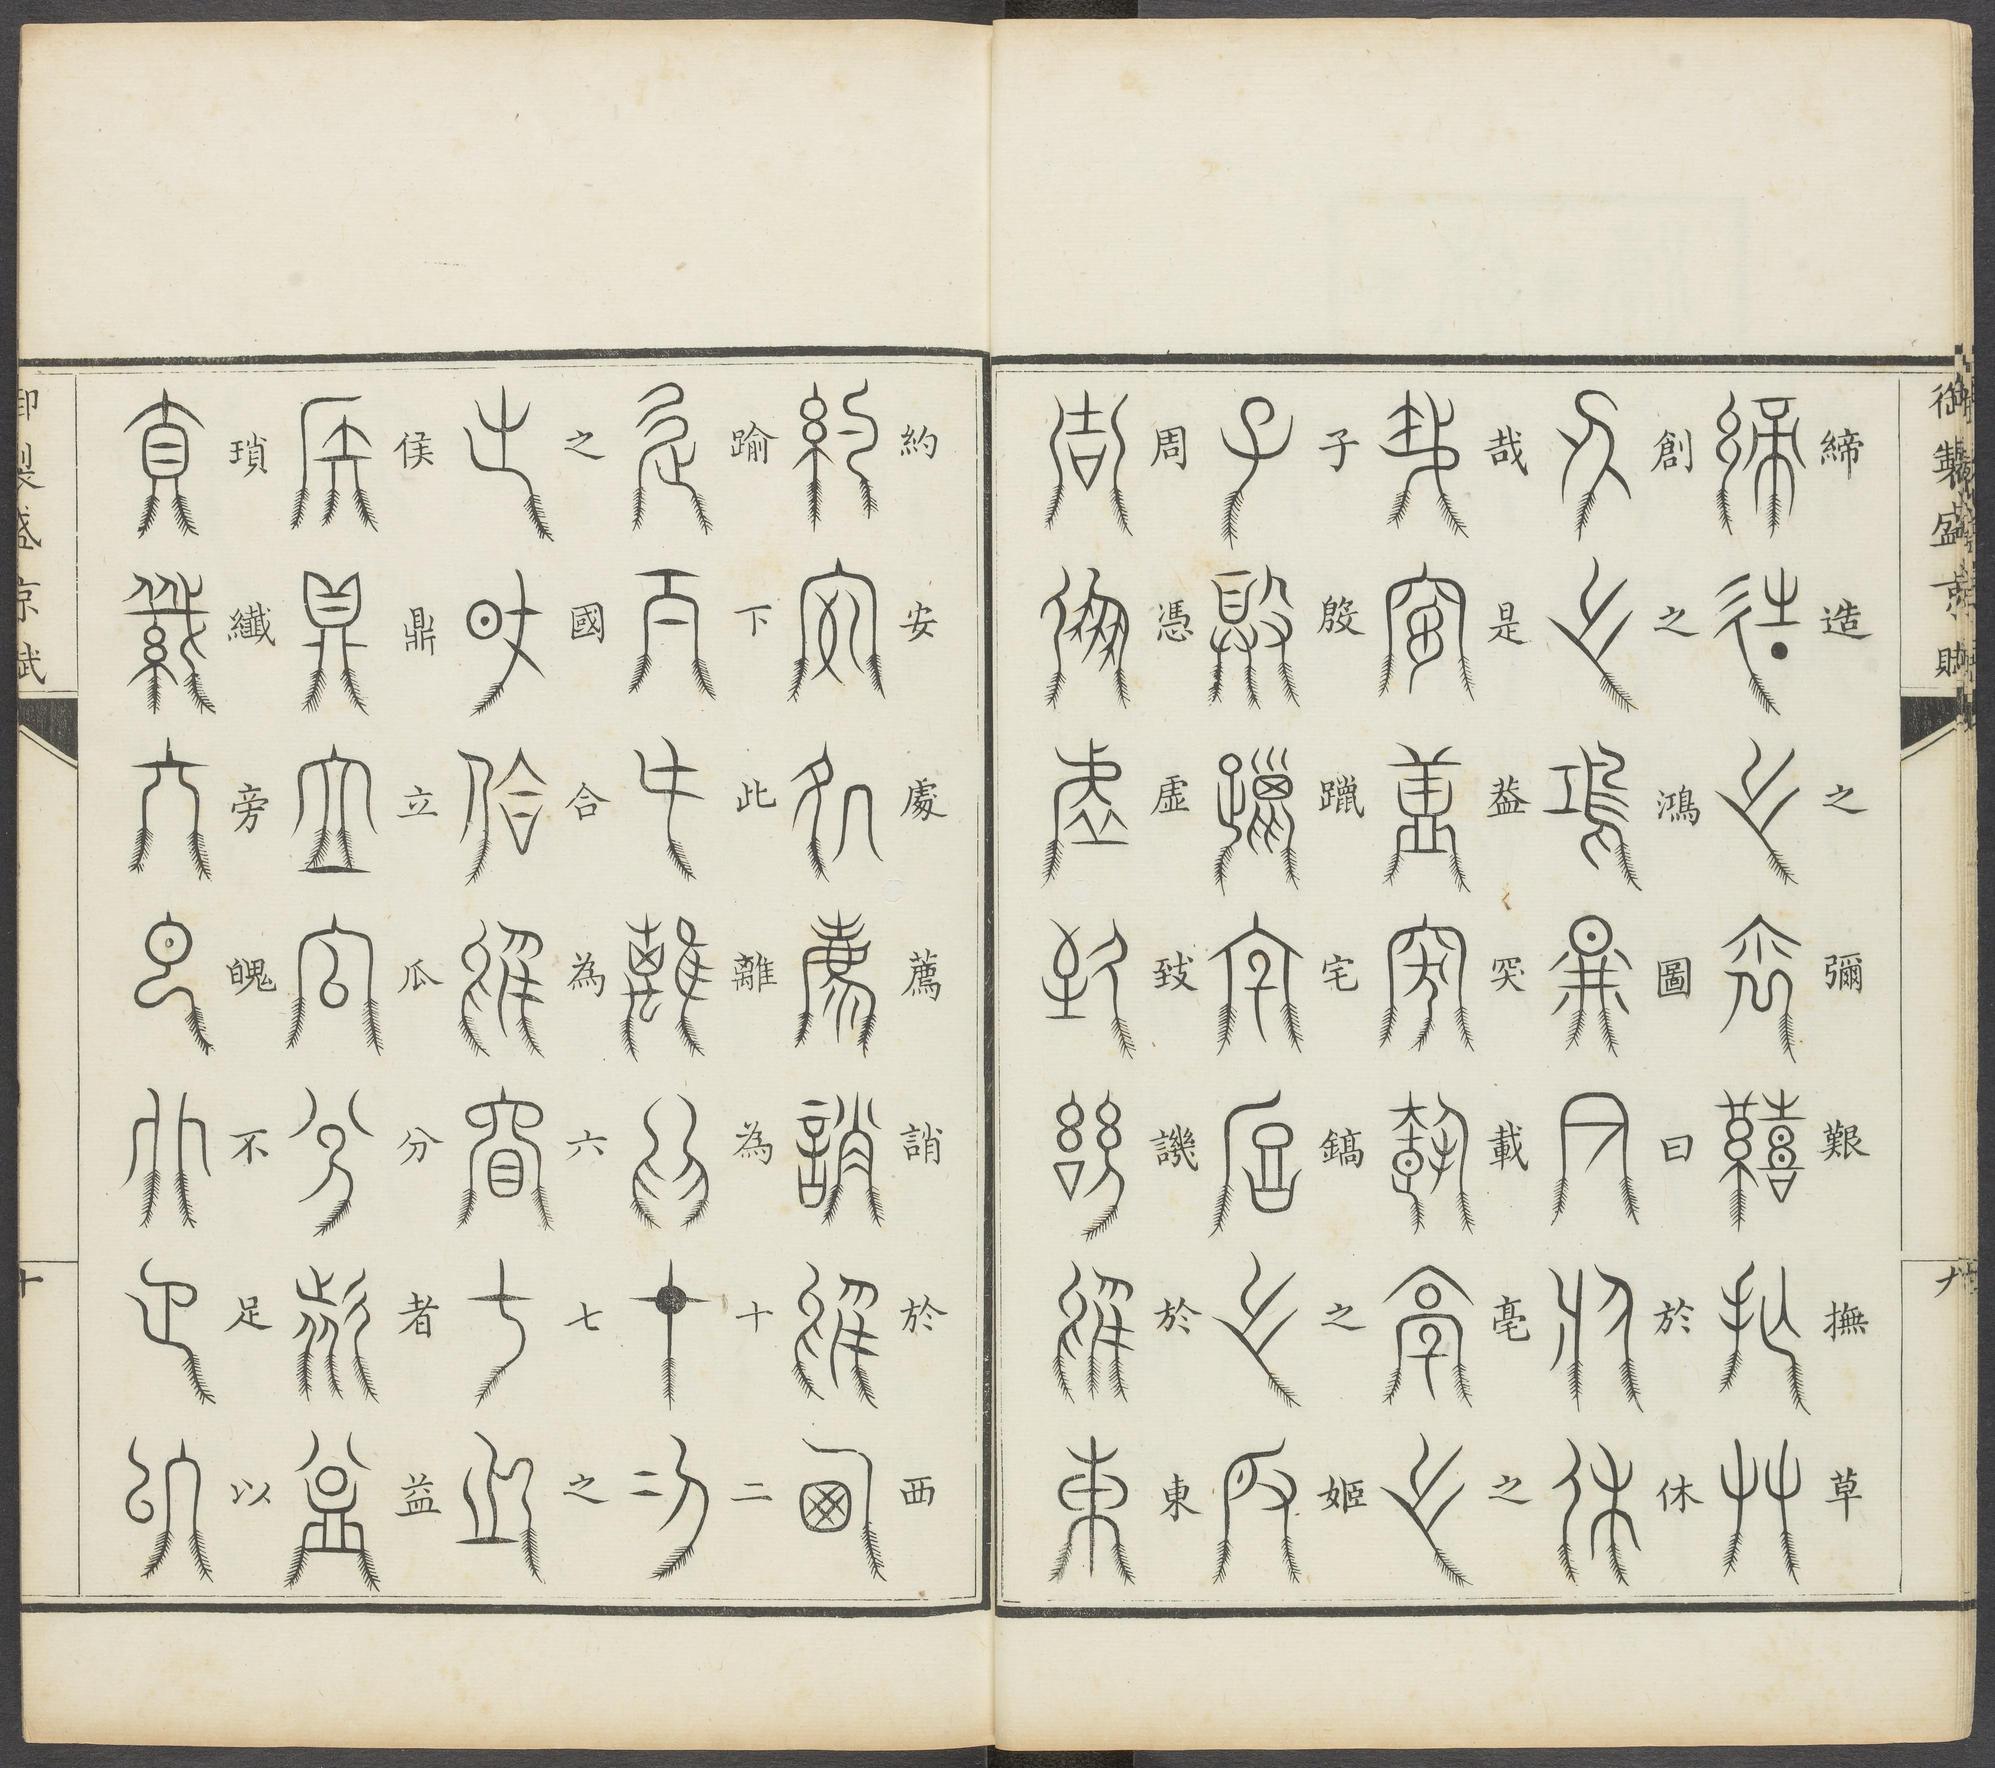 御製盛京賦
締造之彌艱撫草
創之鴻圖曰於休
哉是葢突載亳之
子殷躐宅鎬之姬
周憑虛致譏於東
約安處薦誚於西
踰下此離為十二
之國合為六七之
侯鼎立瓜分者益
瑣纖旁眽不足以
御製盛京賦
十